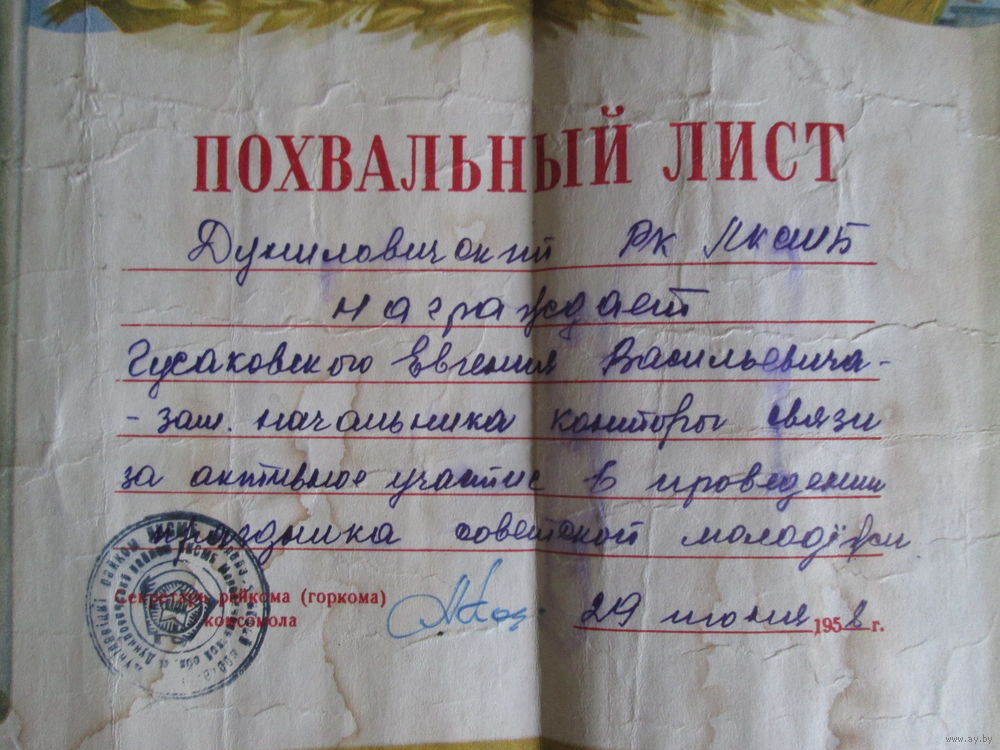 ПОХВАЛЬНЫЙ ЛИСТ
Дуниловичский РК ЛКСМБ
награждает
Гусаковского Евгения Васильевича-
- зам. начальника конторы связи
за активное участие в проведении
праздника советской молодёжи.
Секретарь райкома (горкома)
комсомола
29 июня 1958 г.
www.ay.by